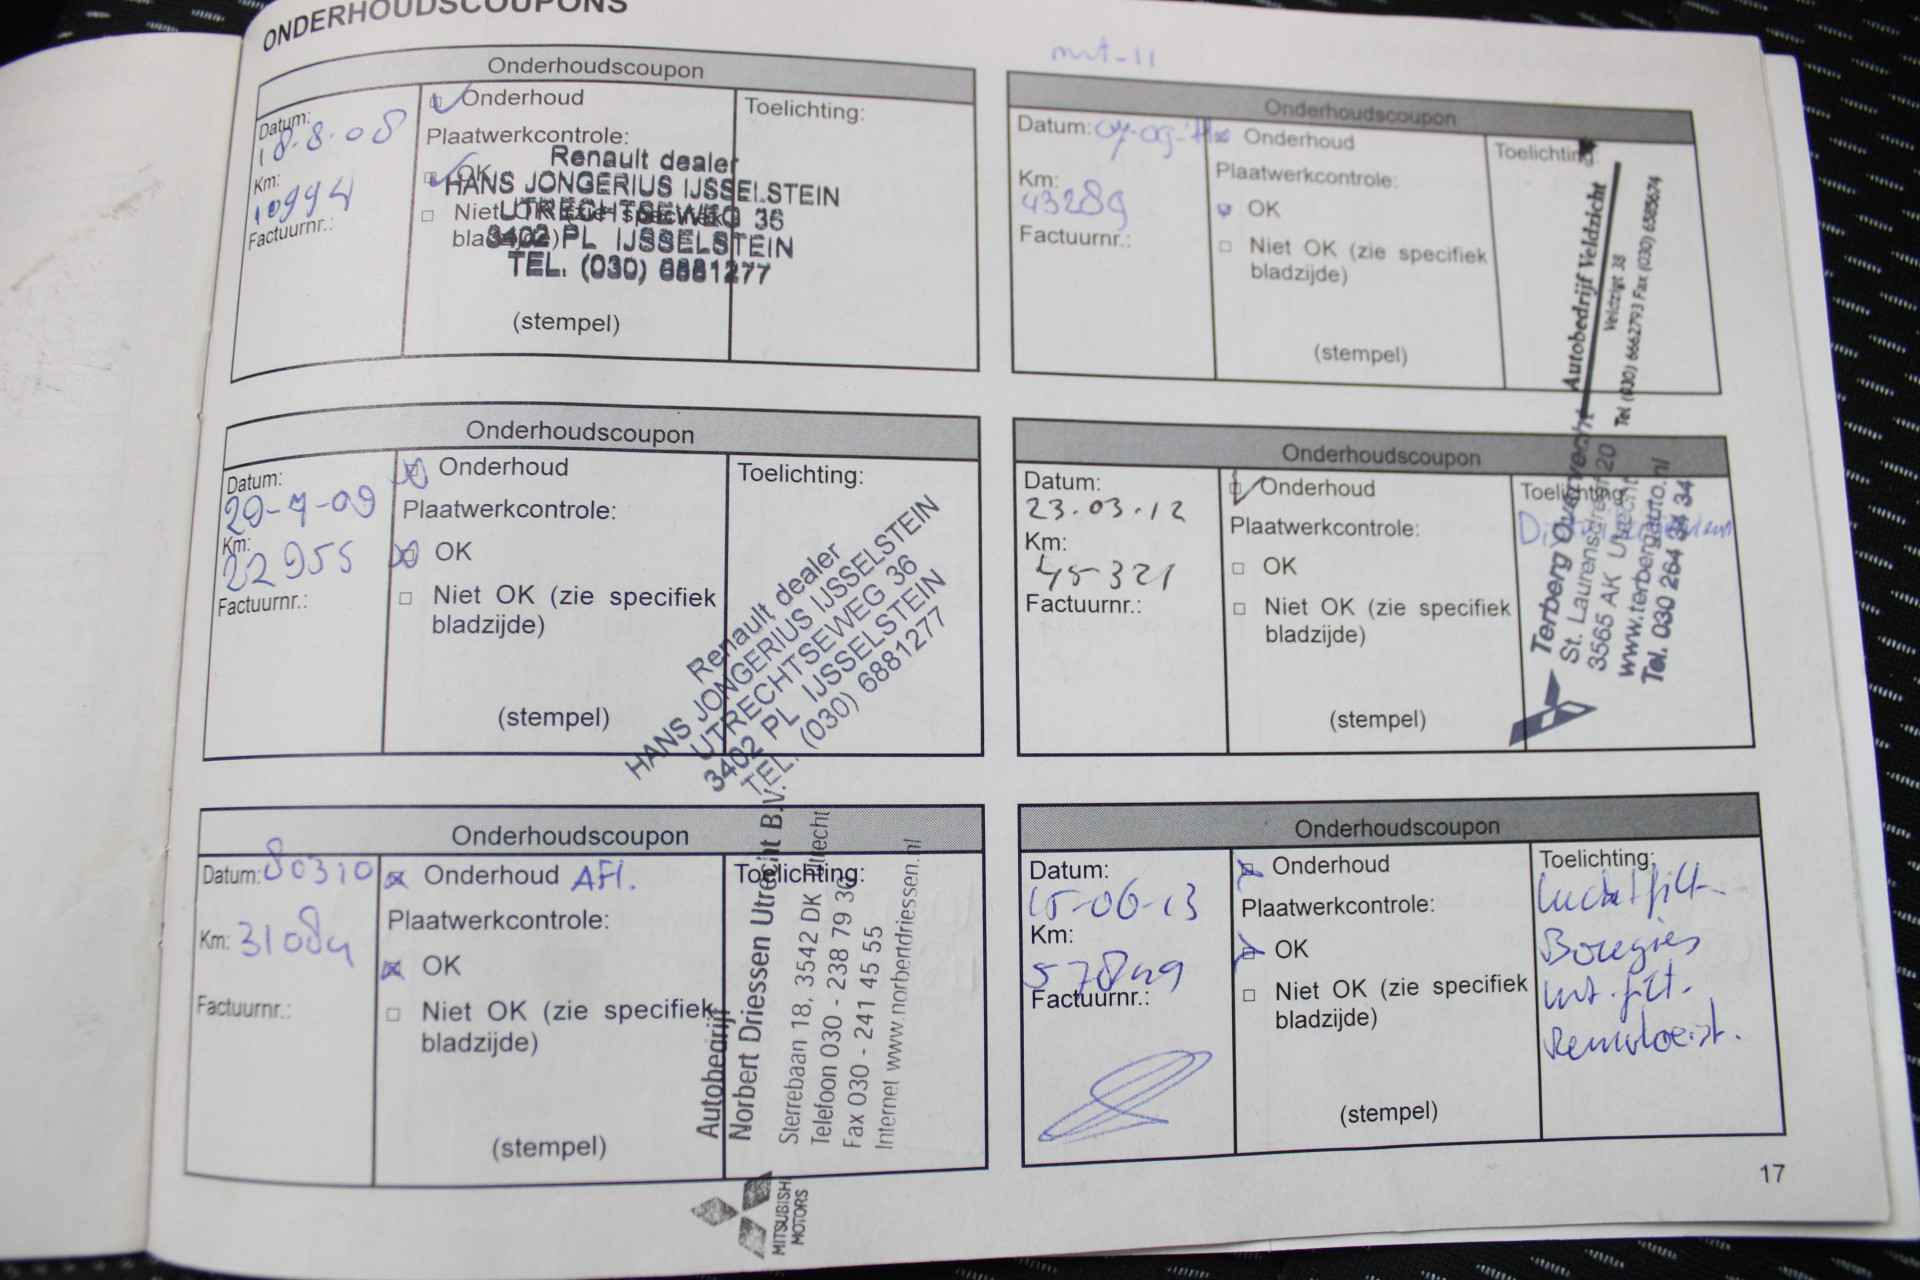 ONDERHOUDSCOUPONS
Onderhoudscoupon
Datum:
18.8.08
Km:
10994
Factuurnr.:
Onderhoud
Plaatwerkcontrole:
OK
Niet OK (zie specifiek
bladzijde)
(stempel)
Toelichting:
Renault dealer
HANS JONGERIUS IJSSELSTEIN
UTRECHTSEWEG 36
3402 PL IJSSELSTEIN
TEL. (030) 6881277
Onderhoudscoupon
Datum:
20-7-09
Km:
22955
Factuurnr.:
Onderhoud
Plaatwerkcontrole:
OK
Niet OK (zie specifiek
bladzijde)
(stempel)
Toelichting:
Renault dealer
HANS JONGERIUS IJSSELSTEIN
UTRECHTSEWEG 36
3402 PL IJSSELSTEIN
TEL. (030) 6881277
Onderhoudscoupon
Datum: 80310
Km: 31084
Factuurnr.:
Onderhoud AFl.
Plaatwerkcontrole:
OK
Niet OK (zie specifiek
bladzijde)
(stempel)
Toelichting:
Autobedrijf
Norbert Driessen Utrecht B.V.
Sterrebaan 18, 3542 DK Utrecht
Telefoon 030 - 238 79 36
Fax 030 - 241 45 55
Internet www.norbertdriessen.nl
MITSUBISHI
MOTORS
Onderhoudscoupon
Datum:
Km:
43289
Factuurnr.:
Onderhoud
Plaatwerkcontrole:
OK
Niet OK (zie specifiek
bladzijde)
(stempel)
Toelichting:
Autobedrijf Veldzicht
Veldzigt 38
Tel (030) 6662793 Fax (030) 6385674
Onderhoudscoupon
Datum:
23.03.12
Km:
45321
Factuurnr.:
Onderhoud
Plaatwerkcontrole:
OK
Niet OK (zie specifiek
bladzijde)
(stempel)
Toelichting:
Terberg Overvecht
St. Laurensdreef 20
3565 AK Utrecht
www.terbergauto.nl
Tel. 030 264 34 34
Onderhoudscoupon
Datum:
15-06-13
Km:
57849
Factuurnr.:
Onderhoud
Plaatwerkcontrole:
OK
Niet OK (zie specifiek
bladzijde)
(stempel)
Toelichting:
Luchtfilt.
Bougies
Int. filt.
Remvloeist.
17